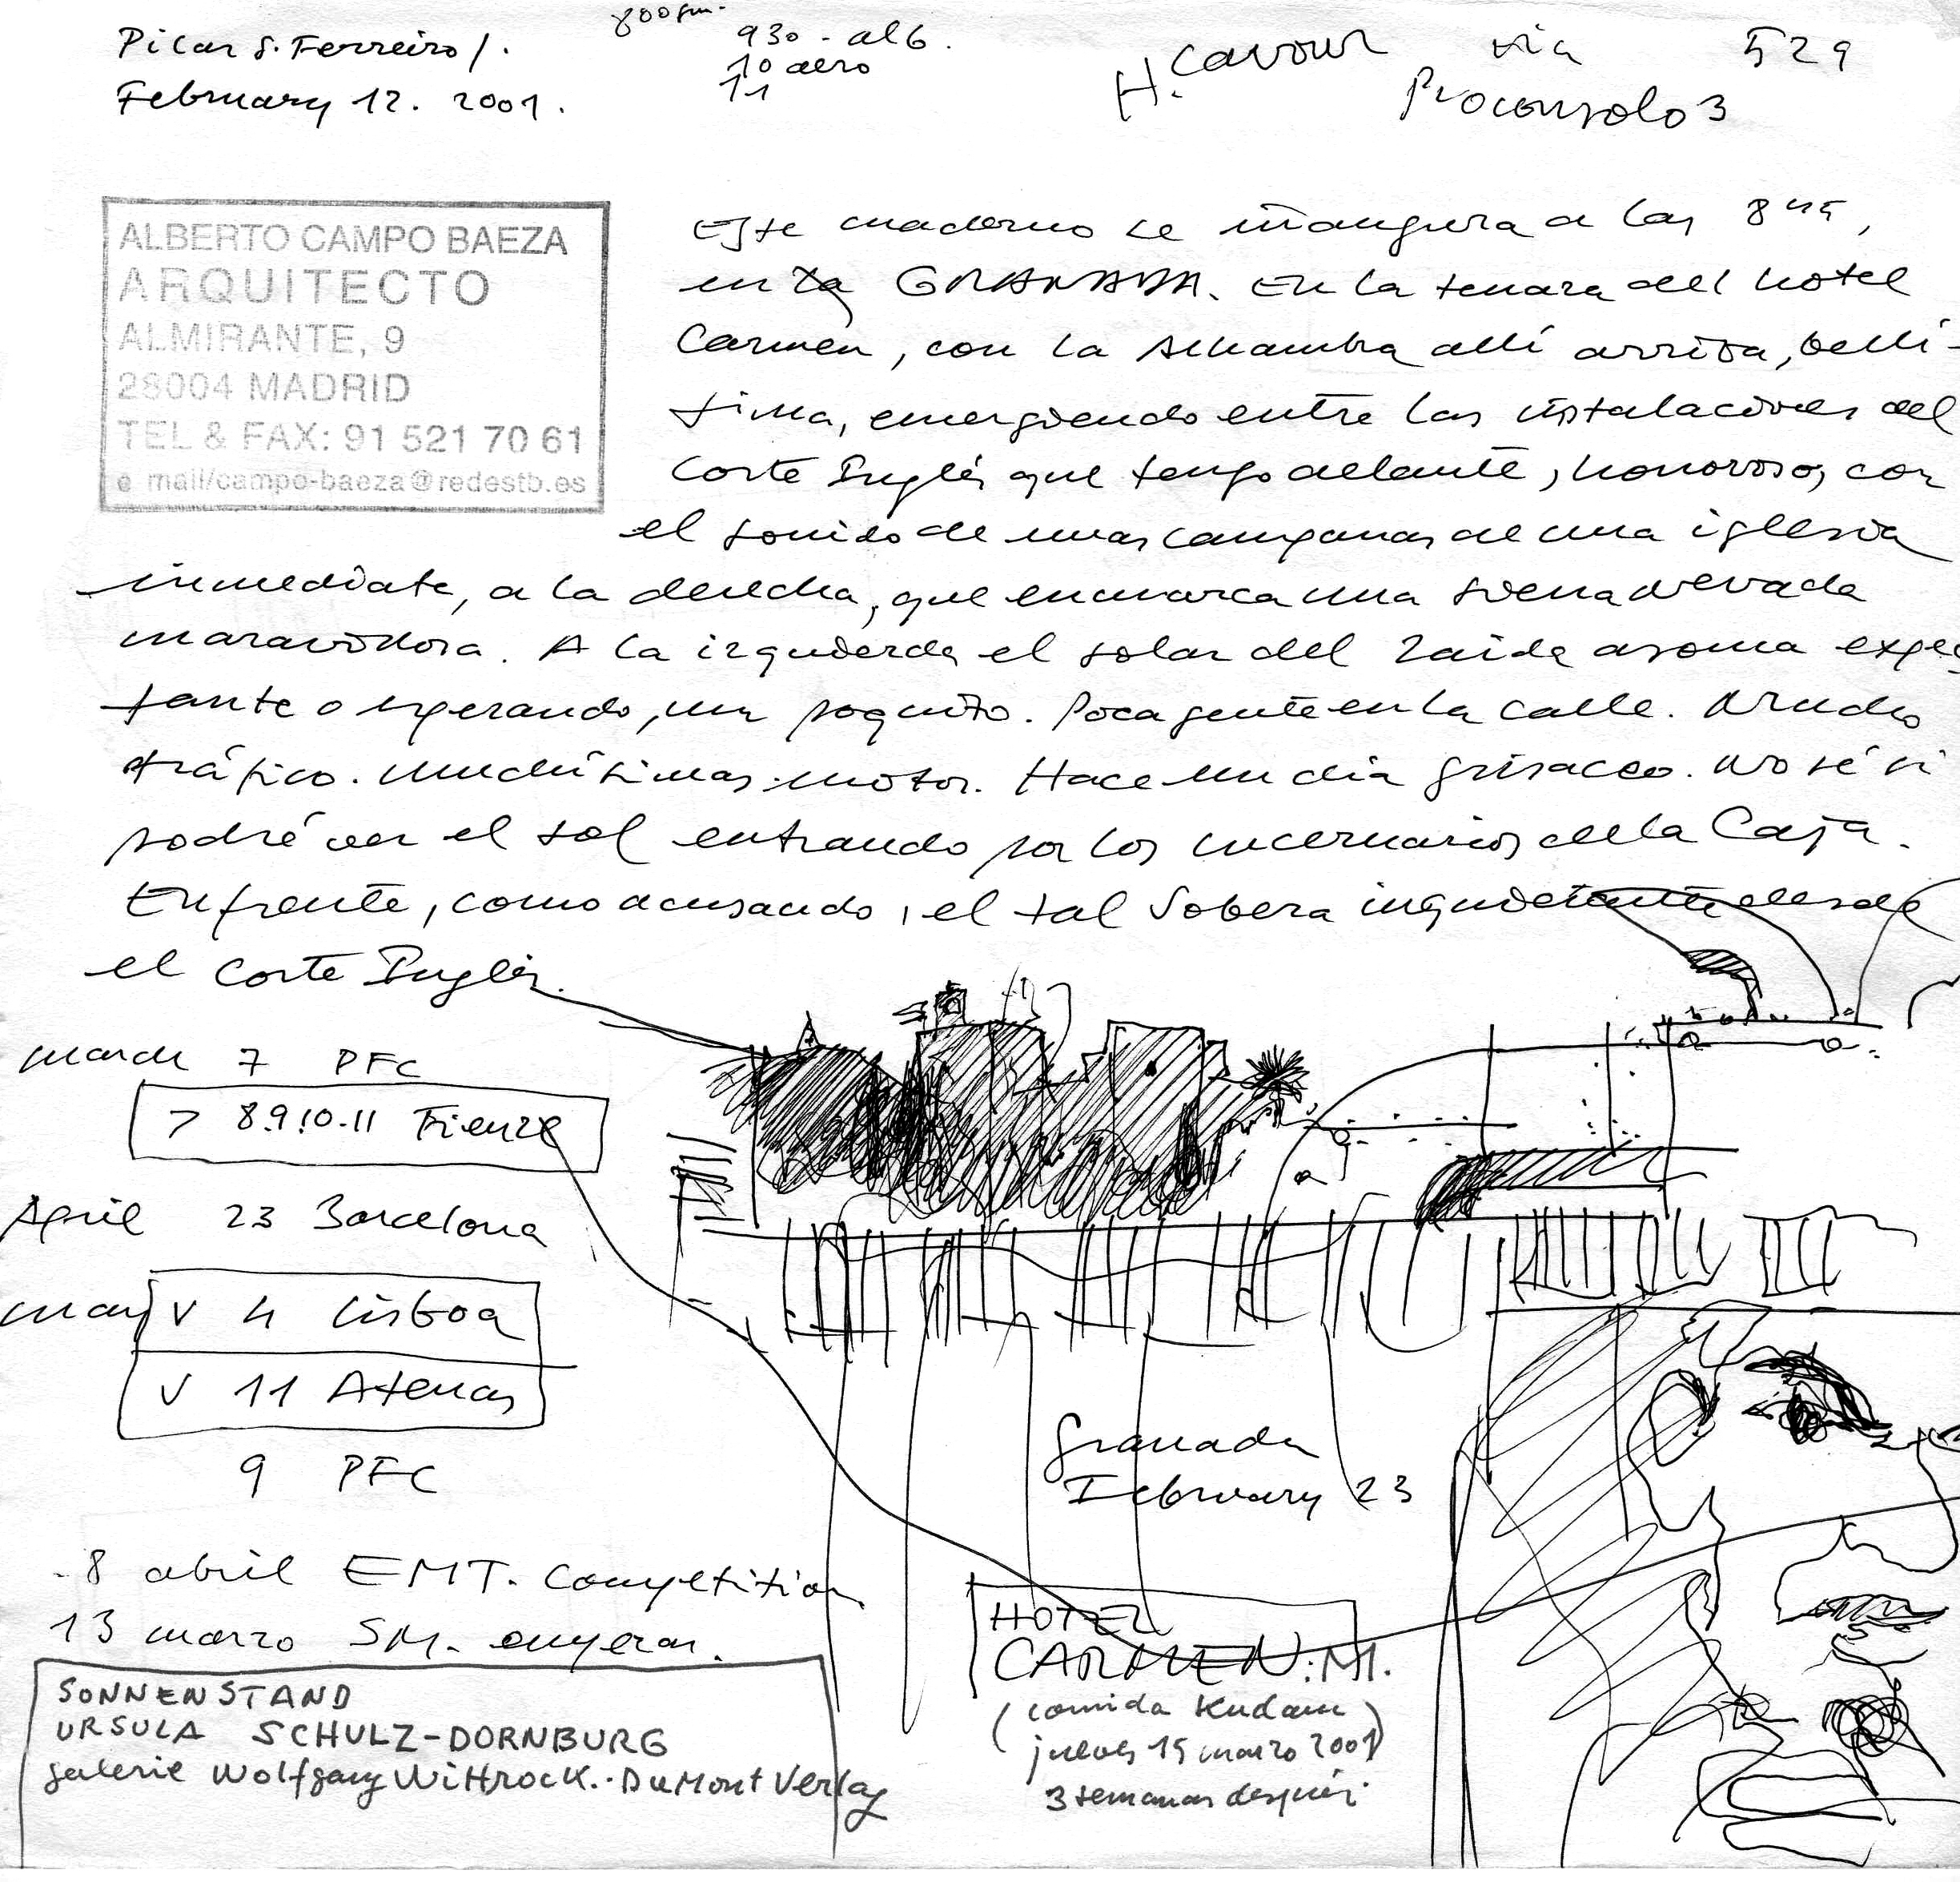 Pilar S. Ferreiro/.
February 12. 2001.
930 - alb.
10 aero
11
H. Cavour via
Proconsolo 3
529
ALBERTO CAMPO BAEZA
ARQUITECTO
ALMIRANTE, 9
28004 MADRID
TEL & FAX: 91 521 70 61
e mail/campo-baeza@redestb.es
Este cuaderno se inaugura a las 8
en GRANADA. En la terraza del hotel
Carmen, con la Alhambra allí arriba, belli-
sima, emergiendo entre las instalaciones del
Corte Inglés que tengo delante, horroroso, con
el sonido de unas campanas de una iglesia
inmediata, a la derecha, que enmarca una Sierra Nevada
maravillosa. A la izquierda el solar del Zaida asoma expec
tante o esperando, un poquito. Poca gente en la calle. Mucho
tráfico. Muchísimas motos. Hace un día grisaceo. No sé si
podré ver el sol entrando por los lucernarios de la Caja.
Enfrente, como acusando, el tal Sobera inquietante desde
el Corte Inglés.
march 7 PFC
> 8.9.10.11 Firenze
April 23 Barcelona
may V 4 Lisboa
V 11 Atenas
9 PFC
8 abril EMT. Competition
13 marzo SM.
Granada
February 23
SONNENSTAND
URSULA SCHULZ-DORNBURG
galerie Wolfgang Wittrock.. DuMont Verlag
HOTEL
CARMEN. M.
(comida
jueves 15 marzo 2001)
3 semanas después.